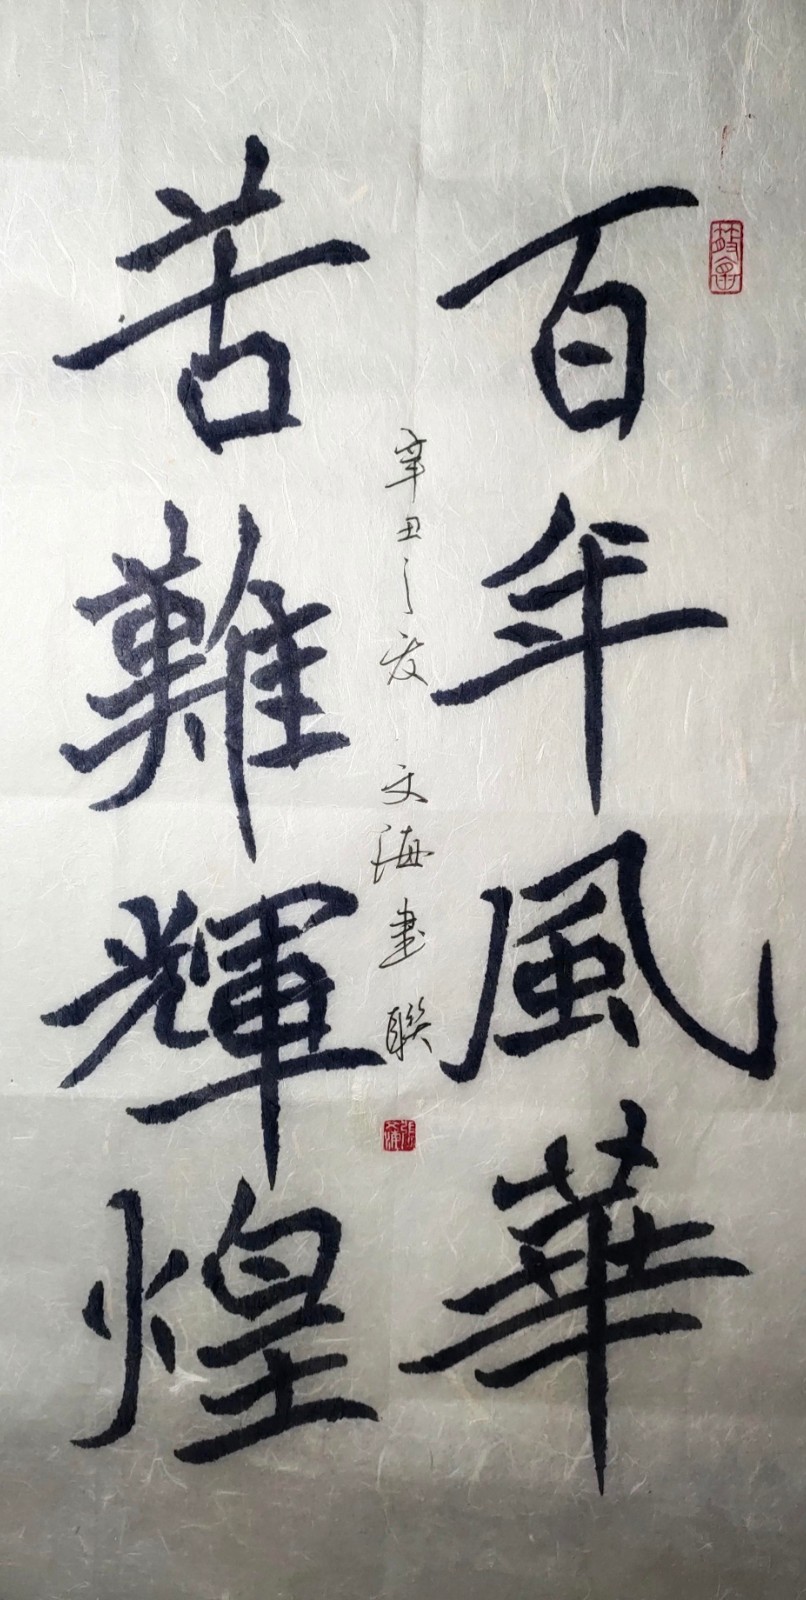 百年風華
辛丑之夏 文海書聯
苦難輝煌